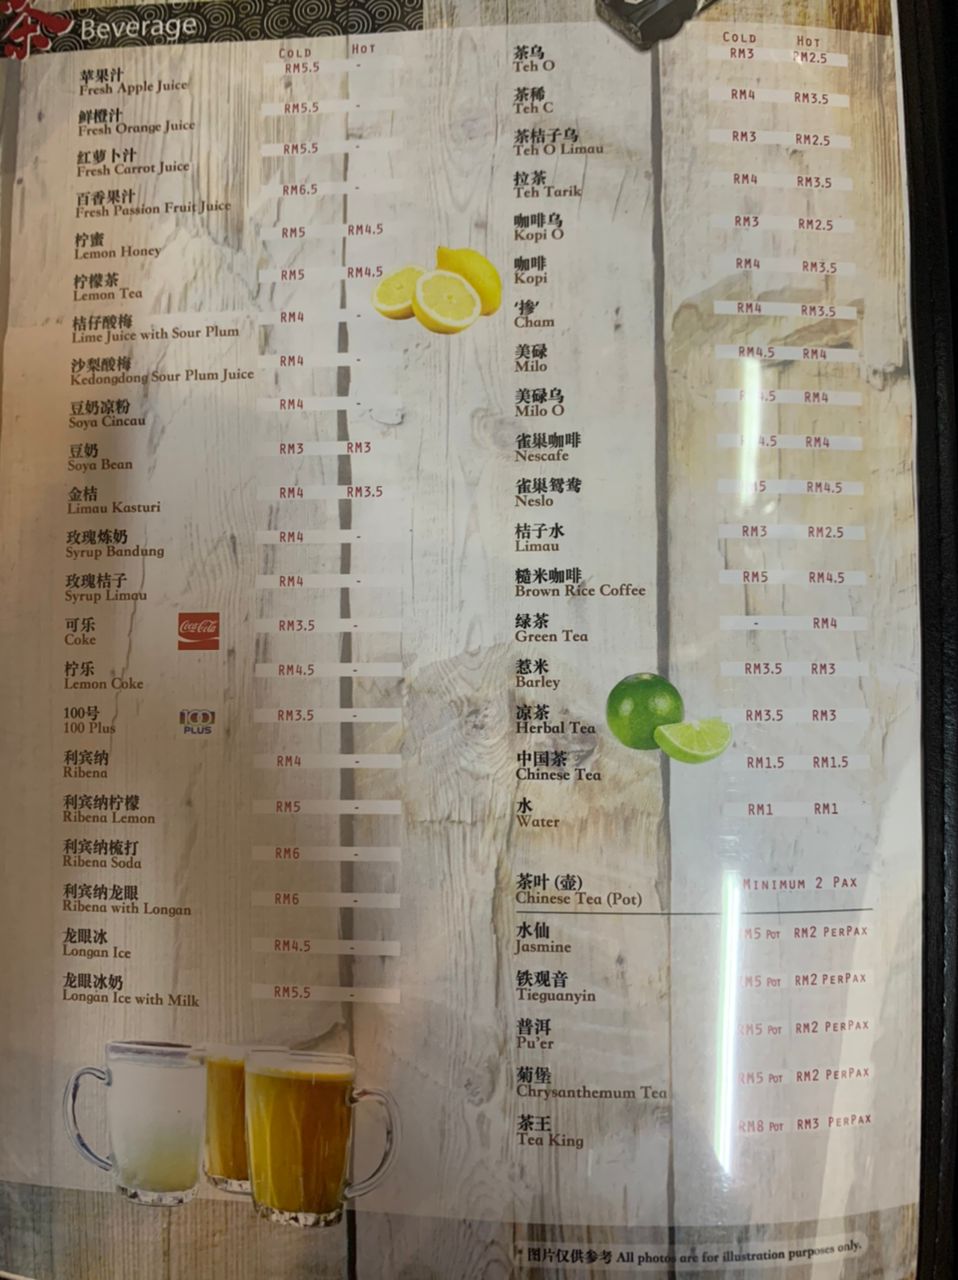 茶 Beverage
COLD HOT
苹果汁 RM5.5 -
Fresh Apple Juice
鲜橙汁 RM5.5 -
Fresh Orange Juice
红萝卜汁 RM5.5 -
Fresh Carrot Juice
百香果汁 RM6.5 -
Fresh Passion Fruit Juice
柠蜜 RM5 RM4.5
Lemon Honey
柠檬茶 RM5 RM4.5
Lemon Tea
桔仔酸梅 RM4 -
Lime Juice with Sour Plum
沙梨酸梅 RM4 -
Kedongdong Sour Plum Juice
豆奶凉粉 RM4 -
Soya Cincau
豆奶 RM3 RM3
Soya Bean
金桔 RM4 RM3.5
Limau Kasturi
玫瑰炼奶 RM4 -
Syrup Bandung
玫瑰桔子 RM4 -
Syrup Limau
可乐 Coca-Cola RM3.5 -
Coke
柠乐 RM4.5 -
Lemon Coke
100号 100 PLUS RM3.5 -
100 Plus
利宾纳 RM4 -
Ribena
利宾纳柠檬 RM5 -
Ribena Lemon
利宾纳梳打 RM6 -
Ribena Soda
利宾纳龙眼 RM6 -
Ribena with Longan
龙眼冰 RM4.5 -
Longan Ice
龙眼冰奶 RM5.5 -
Longan Ice with Milk
COLD HOT
茶乌 RM3 RM2.5
Teh O
茶稀 RM4 RM3.5
Teh C
茶桔子乌 RM3 RM2.5
Teh O Limau
拉茶 RM4 RM3.5
Teh Tarik
咖啡乌 RM3 RM2.5
Kopi O
咖啡 RM4 RM3.5
Kopi
'掺' RM4 RM3.5
Cham
美碌 RM4.5 RM4
Milo
美碌乌 4.5 RM4
Milo O
雀巢咖啡 4.5 RM4
Nescafe
雀巢鸳鸯 5 RM4.5
Neslo
桔子水 RM3 RM2.5
Limau
糙米咖啡 RM5 RM4.5
Brown Rice Coffee
绿茶 - RM4
Green Tea
惹米 RM3.5 RM3
Barley
凉茶 RM3.5 RM3
Herbal Tea
中国茶 RM1.5 RM1.5
Chinese Tea
水 RM1 RM1
Water
茶叶 (壶) MINIMUM 2 PAX
Chinese Tea (Pot)
水仙 M5 POT RM2 PERPAX
Jasmine
铁观音 M5 POT RM2 PERPAX
Tieguanyin
普洱 RM5 POT RM2 PERPAX
Pu'er
菊堡 RM5 POT RM2 PERPAX
Chrysanthemum Tea
茶王 RM8 POT RM3 PERPAX
Tea King
* 图片仅供参考 All photos are for illustration purposes only.